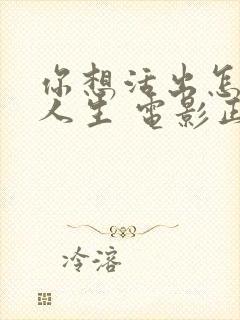 你想活出怎
人生 電影正
冷溶